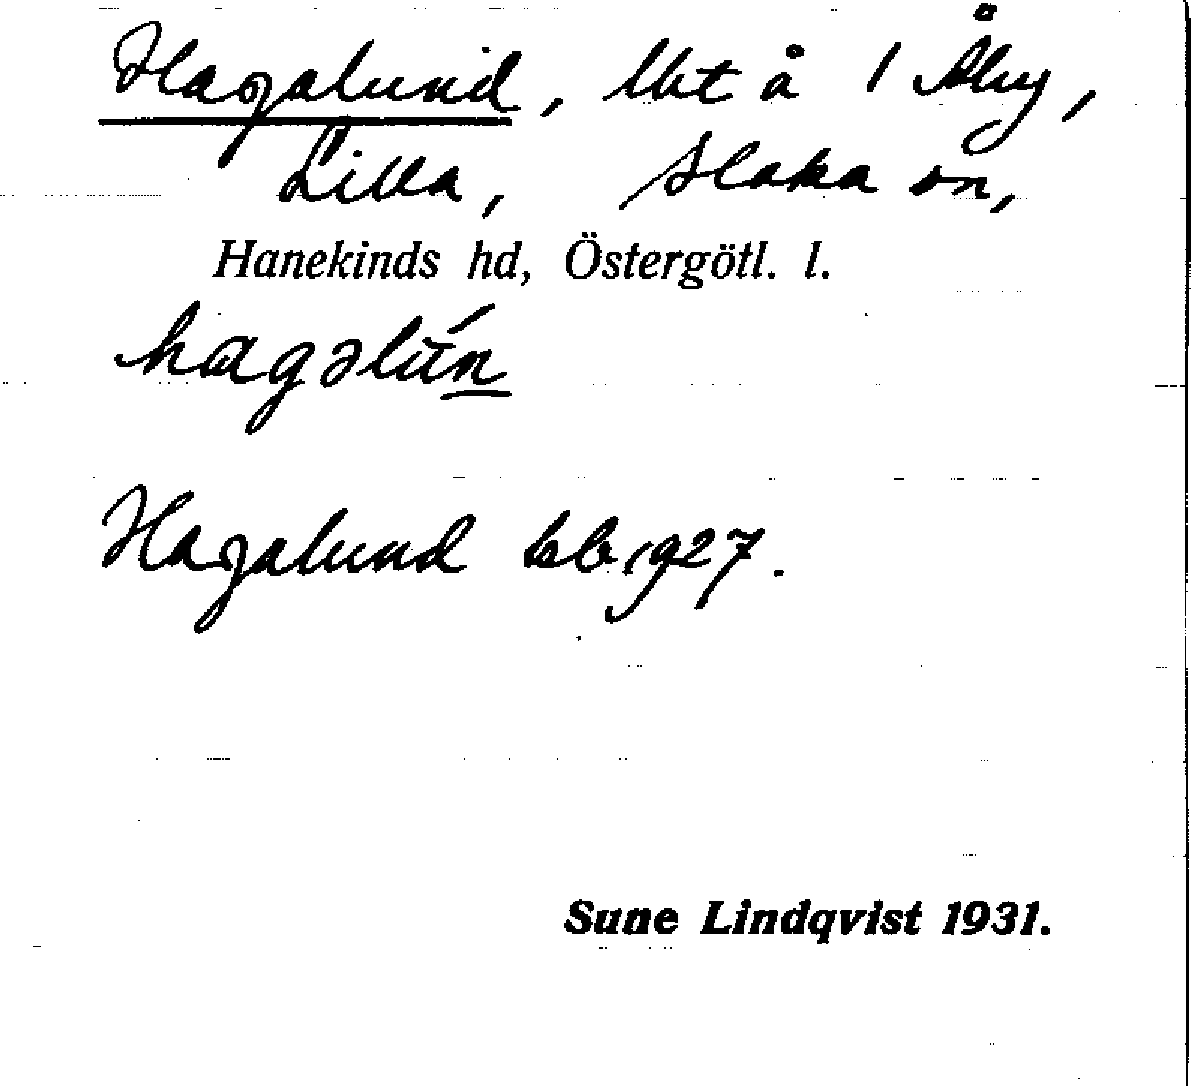 Hagalund, lht å 1 Åby,
Lilla, Slaka sn,
Hanekinds hd, Östergötl. l.
hagəlún
Hagalund kb 1927.
Sune Lindqvist 1931.